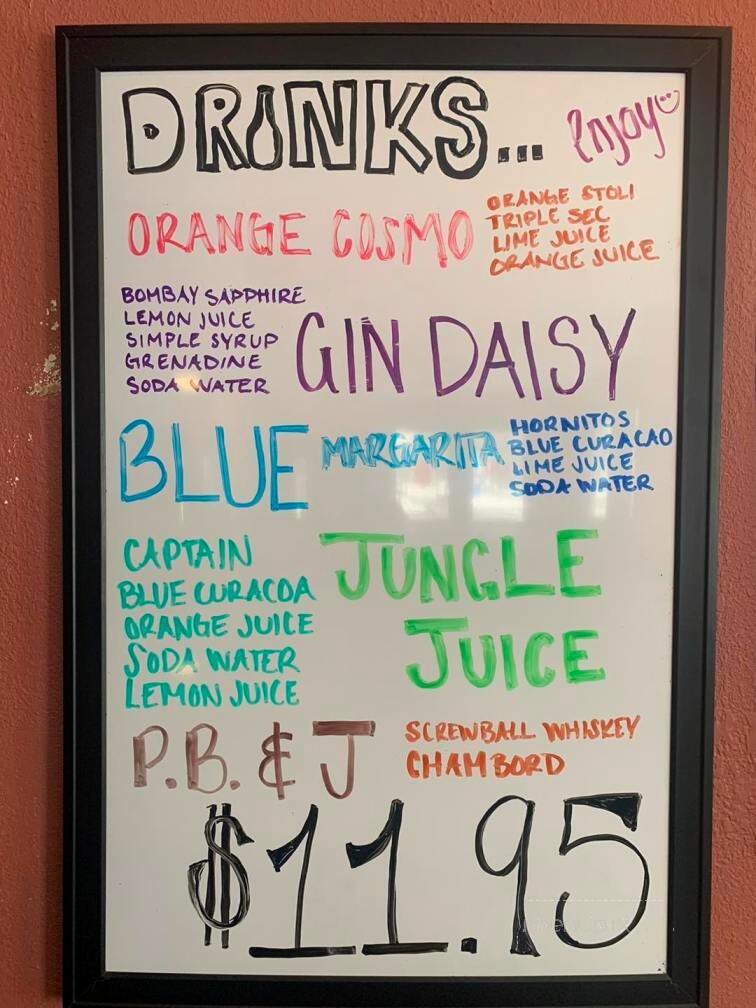 DRINKS...
enjoy
ORANGE COSMO
ORANGE STOLI
TRIPLE SEC
LIME JUICE
ORANGE JUICE
BOMBAY SAPPHIRE
LEMON JUICE
SIMPLE SYRUP
GRENADINE
SODA WATER
GIN DAISY
BLUE MARGARITA
HORNITOS
BLUE CURACAO
LIME JUICE
SODA WATER
CAPTAIN
BLUE CURACOA
ORANGE JUICE
SODA WATER
LEMON JUICE
JUNGLE
JUICE
P.B. & J
SCREWBALL WHISKEY
CHAMBORD
$11.95